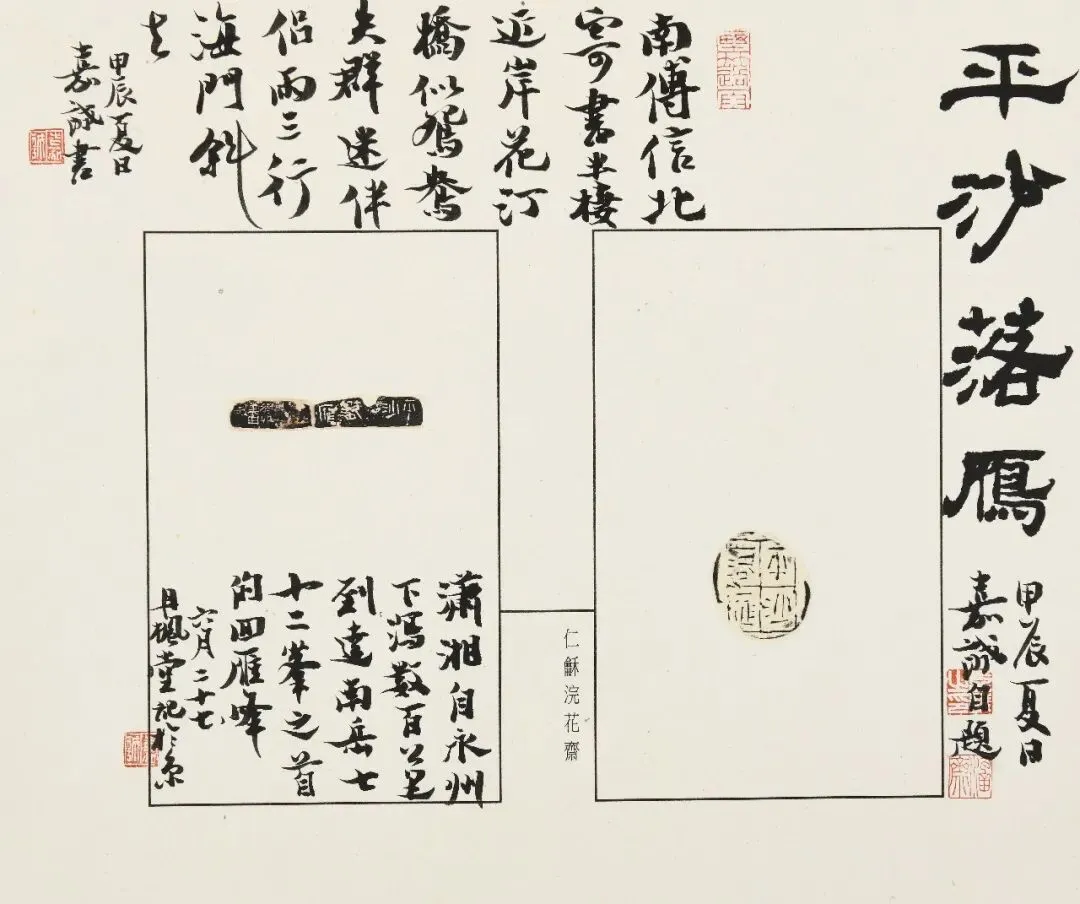 平沙落鴈
甲辰夏日
嘉誠自題
南傳信北
寄書半棲
近岸花汀
橋似鴛鴦
失群迷伴
侶兩三行
海門斜
去
甲辰夏日
嘉誠書
平沙落雁
仁龢浣花齋
平沙落雁
瀟湘自永州
下瀉數百公里
到達南岳七
十二峯之首
的回雁峰
六月二十七
日楓堂記於京